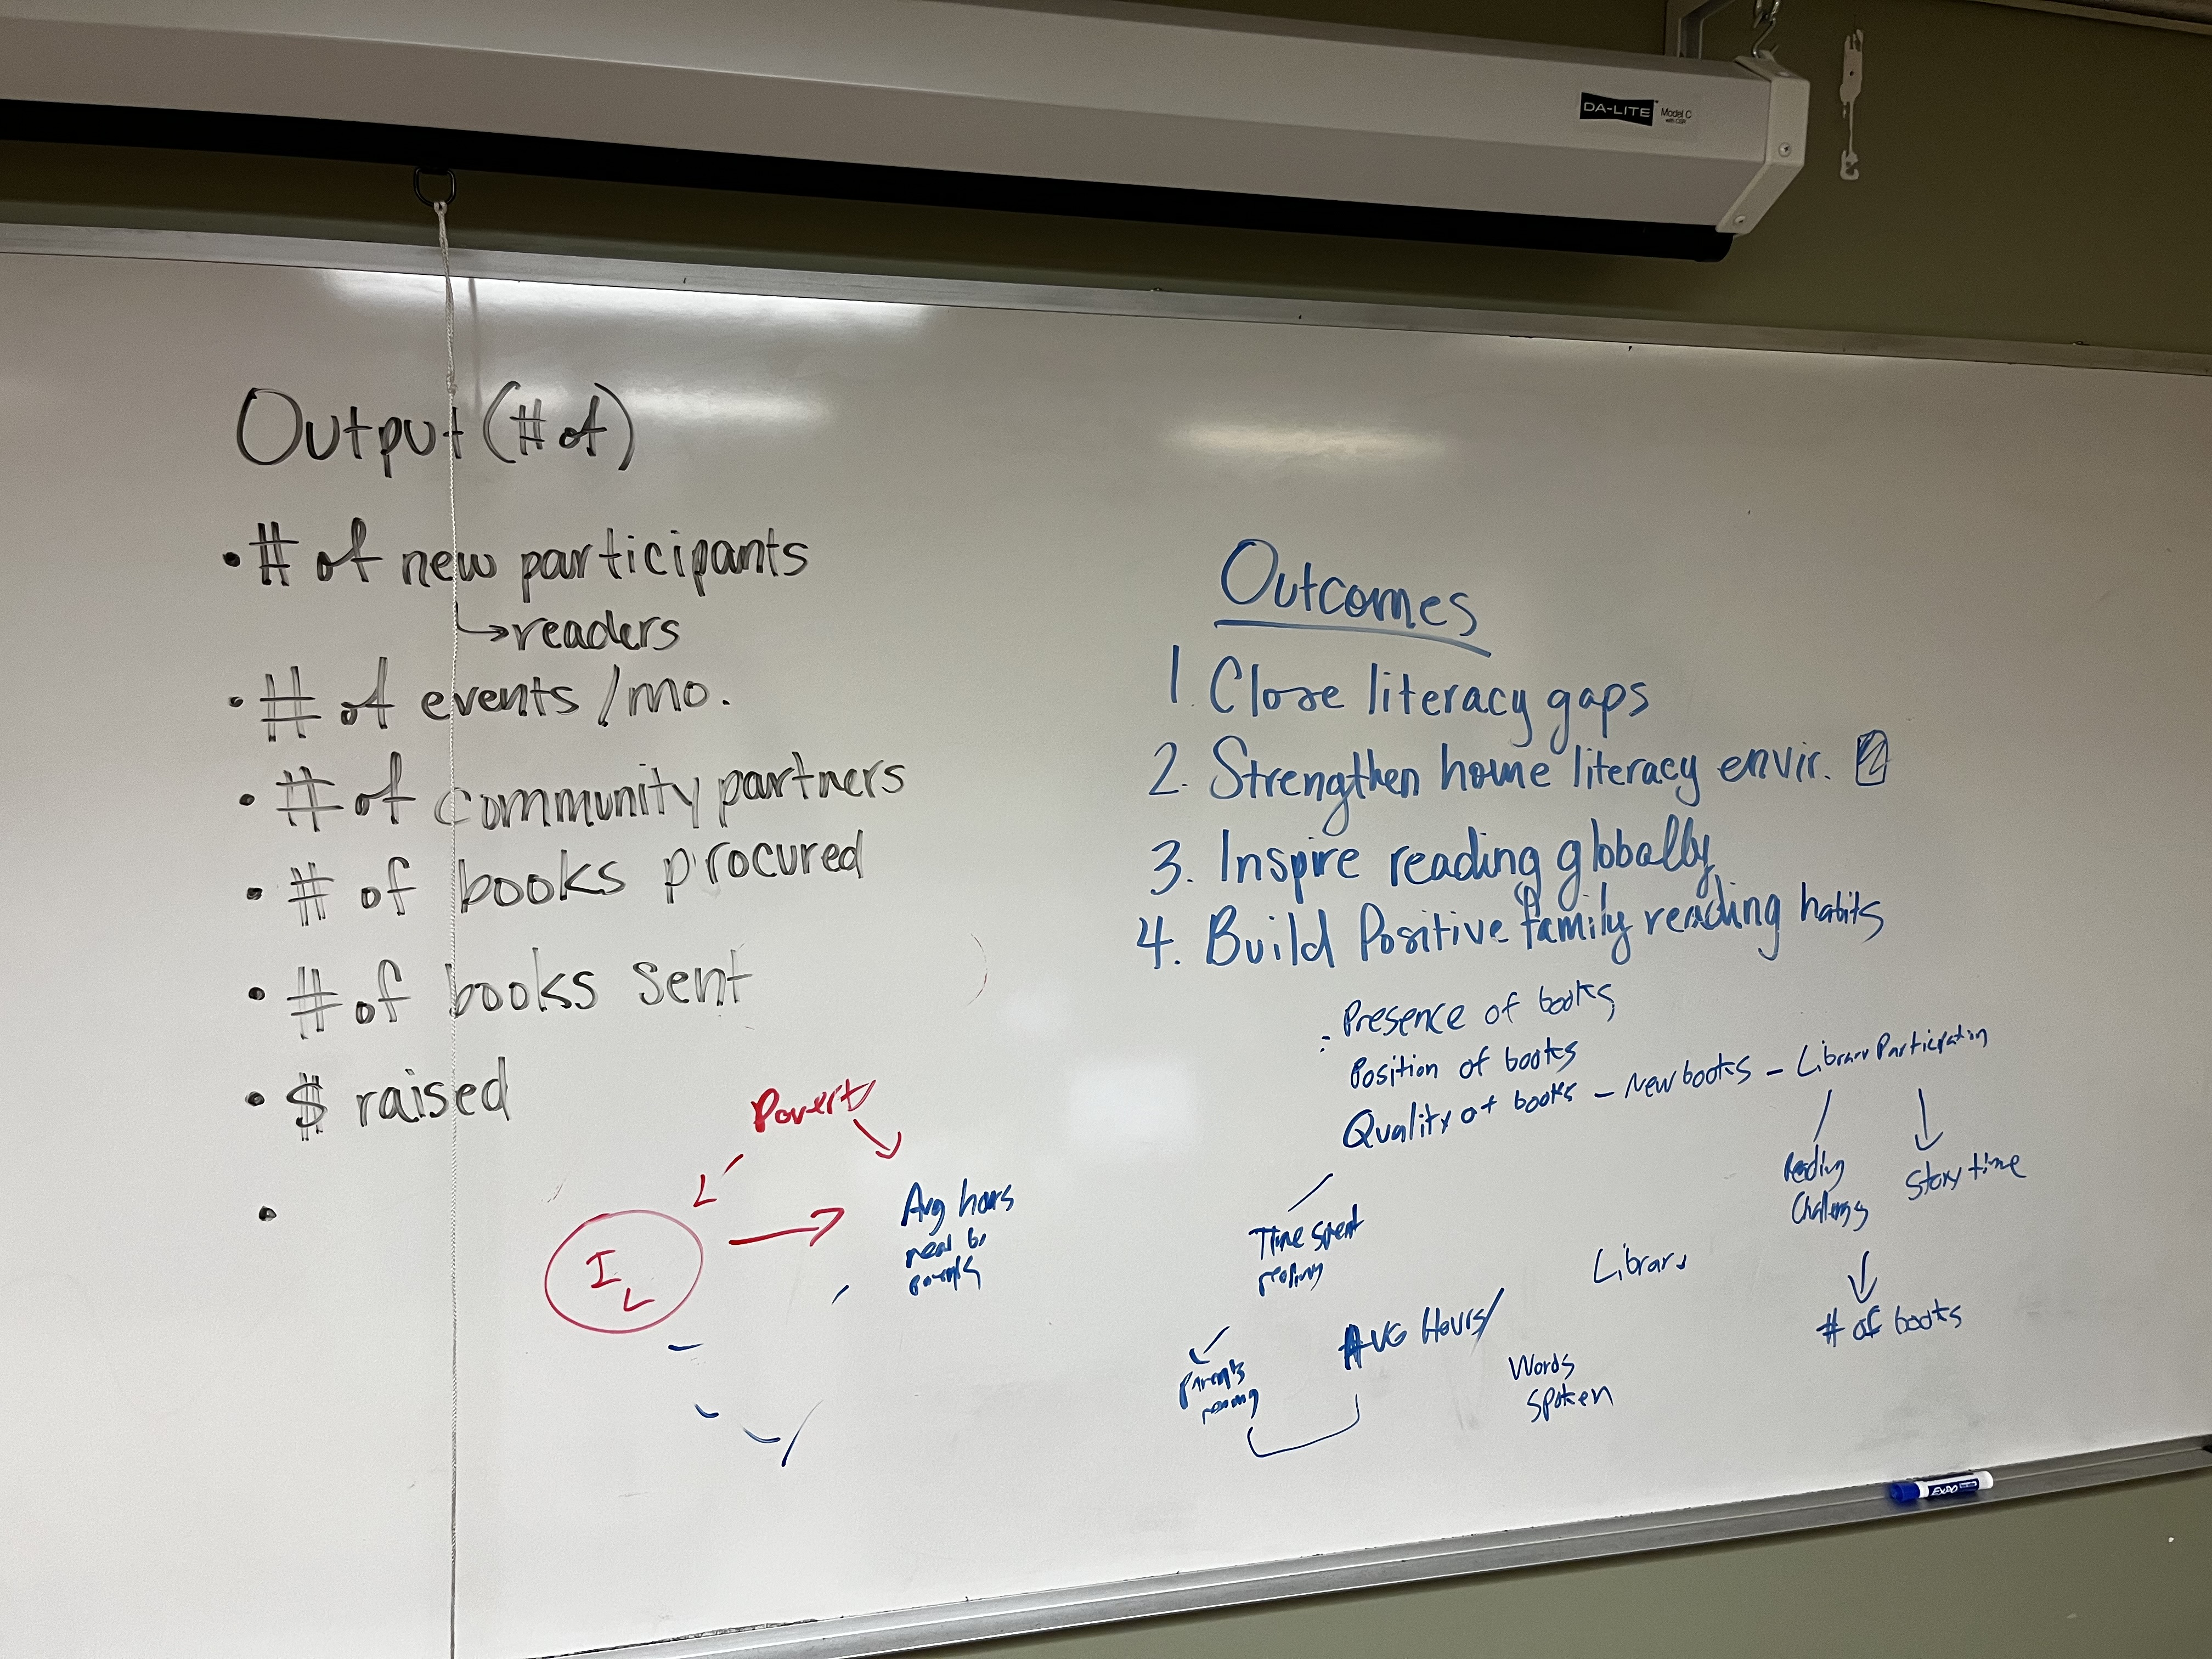 DA-LITE Model C
Output (# of)
• # of new participants
readers
• # of events / mo.
• # of community partners
• # of books procured
• # of books sent
• $ raised
•
Poverty
I L
Avg hours
Outcomes
1. Close literacy gaps
2. Strengthen home literacy envir.
3. Inspire reading globally
4. Build Positive family reading habits
Presence of books
Position of books
Quality of books - New books - Library Participation
Reading
Challenge
Story time
# of books
Time spent
reading
Library
AVG Hours/
Parents
reading
Words
Spoken
EXPO